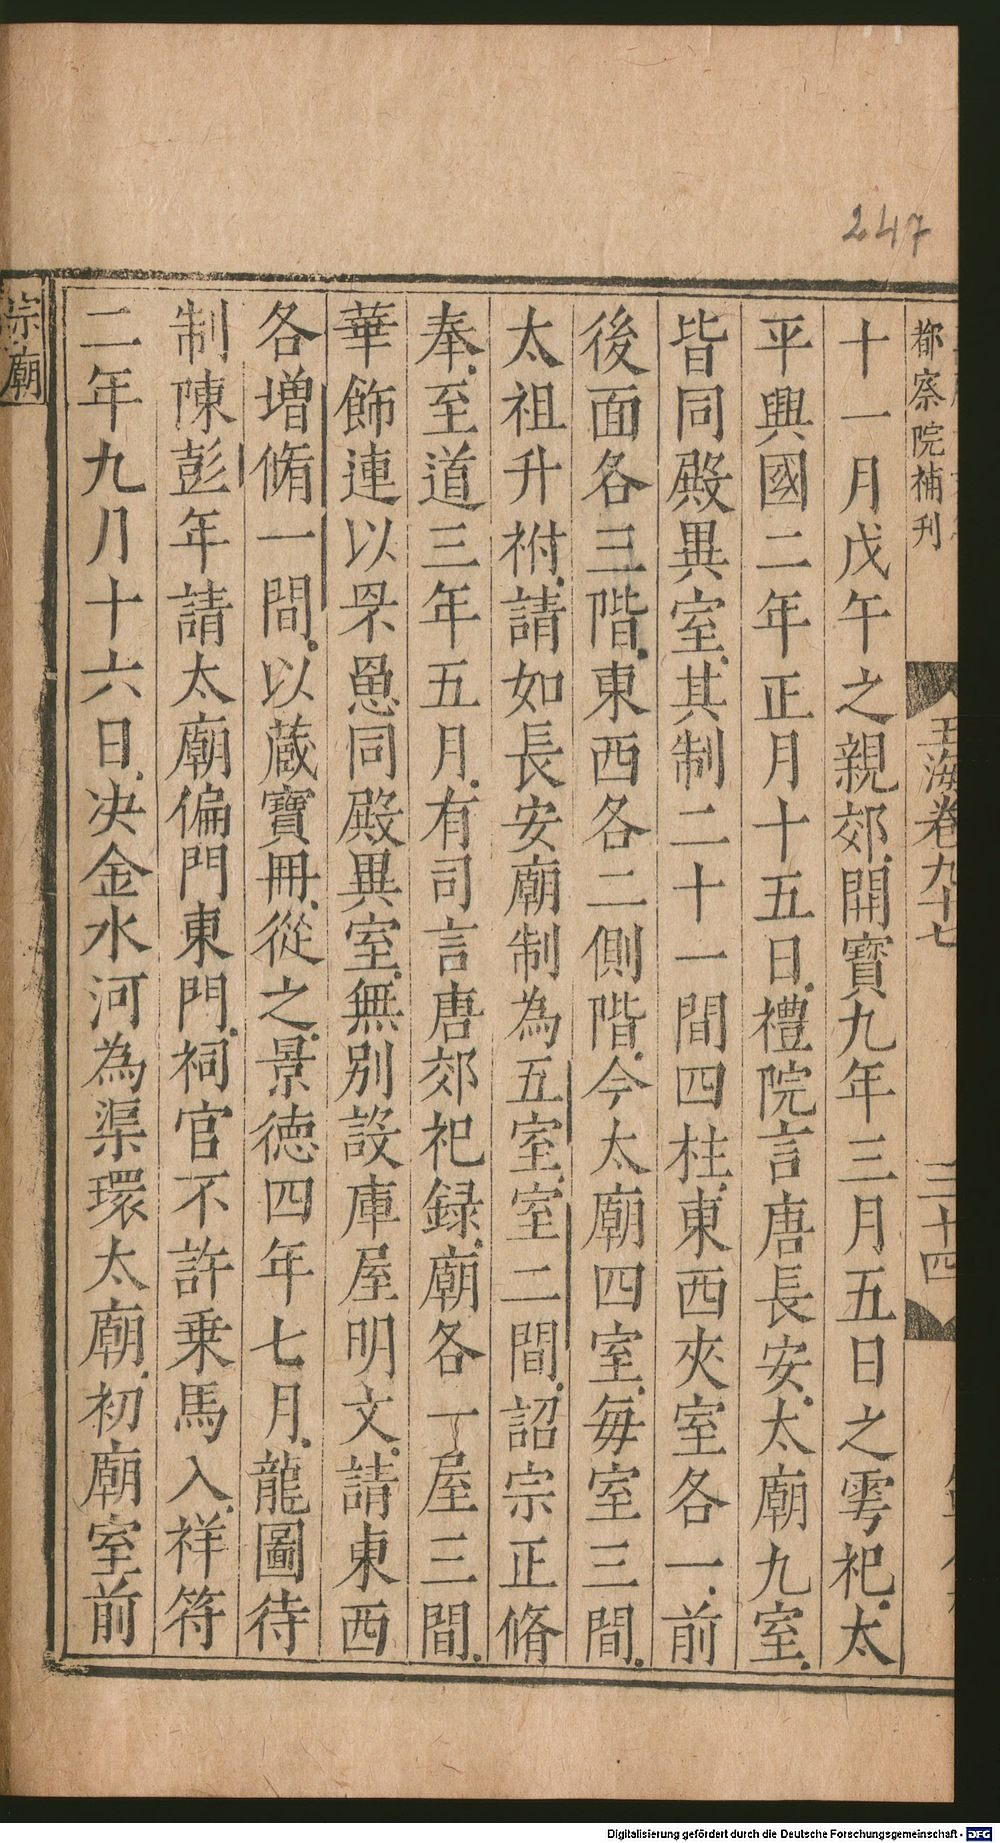 247
都察院補刊
玉海卷九十七
三十四
十一月戊午之親郊開寶九年三月五日之雩祀太
平興國二年正月十五日禮院言唐長安太廟九室
皆同殿異室其制二十一間四柱東西夾室各一前
後面各三階東西各二側階今太廟四室每室三間
太祖升祔請如長安廟制為五室室二間詔宗正脩
奉至道三年五月有司言唐郊祀録廟各一屋三間
華飾連以罘罳同殿異室無別設庫屋明文請東西
各增脩一間以蔵寶冊從之景德四年七月龍圖待
制陳彭年請太廟偏門東門祠官不許乗馬入祥符
二年九月十六日决金水河為渠環太廟初廟室前
宗廟
Digitalisierung gefördert durch die Deutsche Forschungsgemeinschaft - DFG